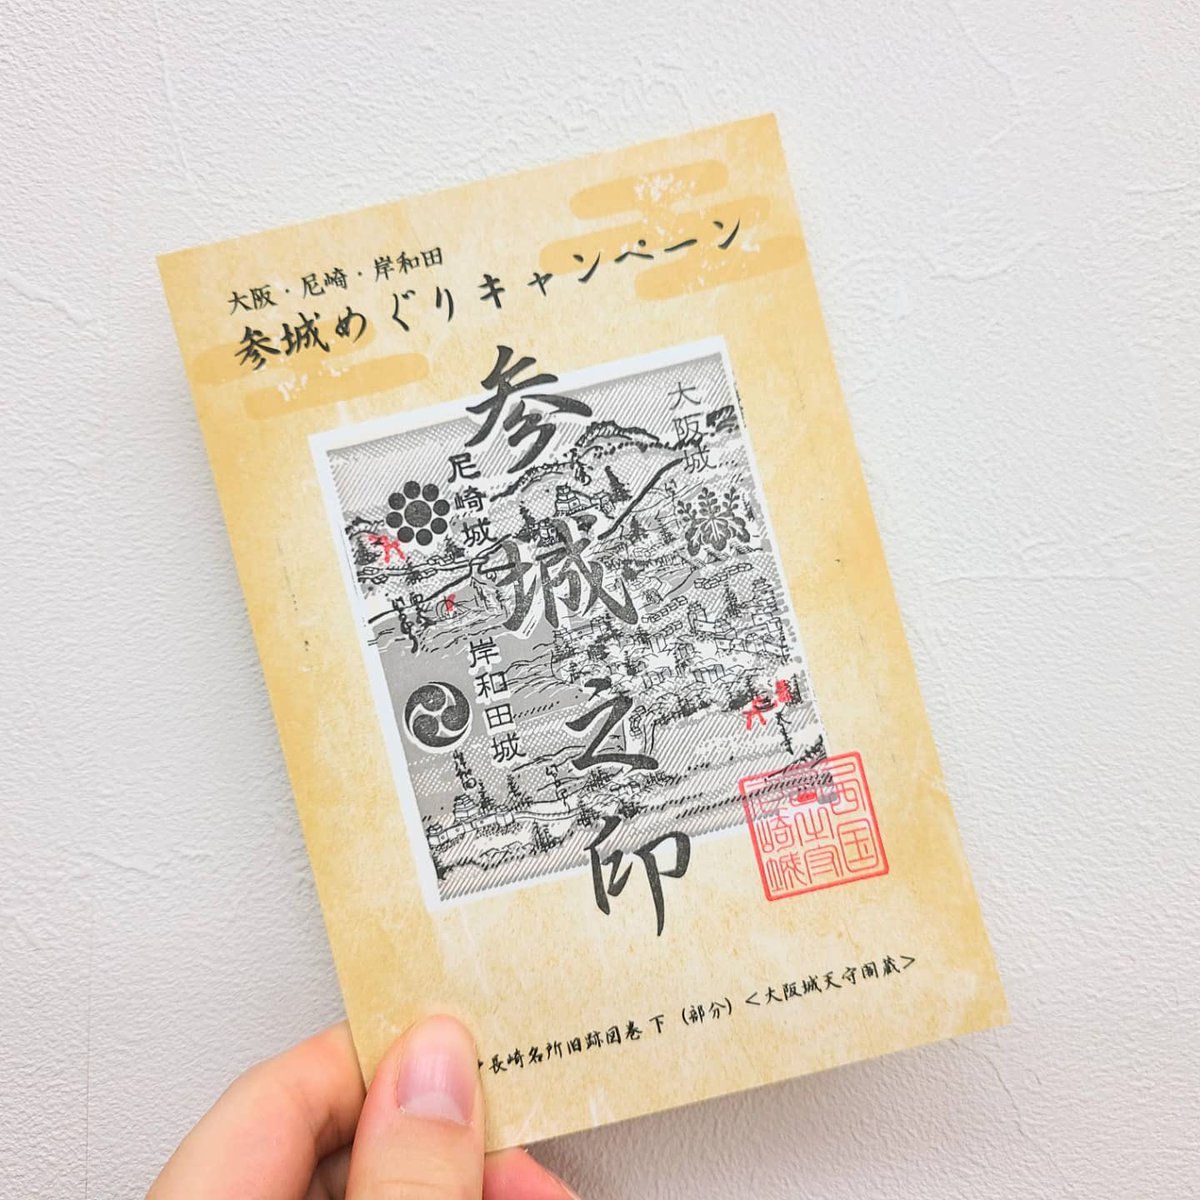 大阪・尼崎・岸和田
参城めぐりキャンペーン
参城之印
大阪城
尼崎城
岸和田城
西国
尼崎城
長崎名所旧跡図巻 下 (部分) <大阪城天守閣蔵>